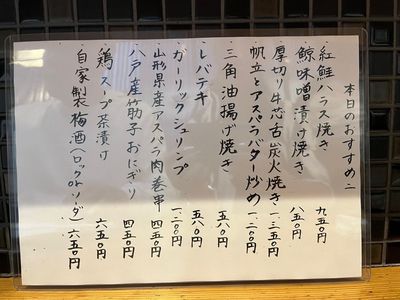 本日のおすすめ二
・紅鮭ハラス焼き 九五〇円
・鯨味噌漬け焼き 八五〇円
・厚切り牛芯舌炭火焼き 一、三五〇円
・帆立とアスパラバタ炒め 一、二〇〇円
・三角油揚げ焼き 五八〇円
・レバテキ 五八〇円
・ガーリックシュリンプ 一、二〇〇円
・山形県産アスパラ肉巻串 四五〇円
・八戸産筋子おにぎり 四五〇円
・鶏スープ茶漬け 六五〇円
・自家製梅酒(ロックorソーダ) 六五〇円